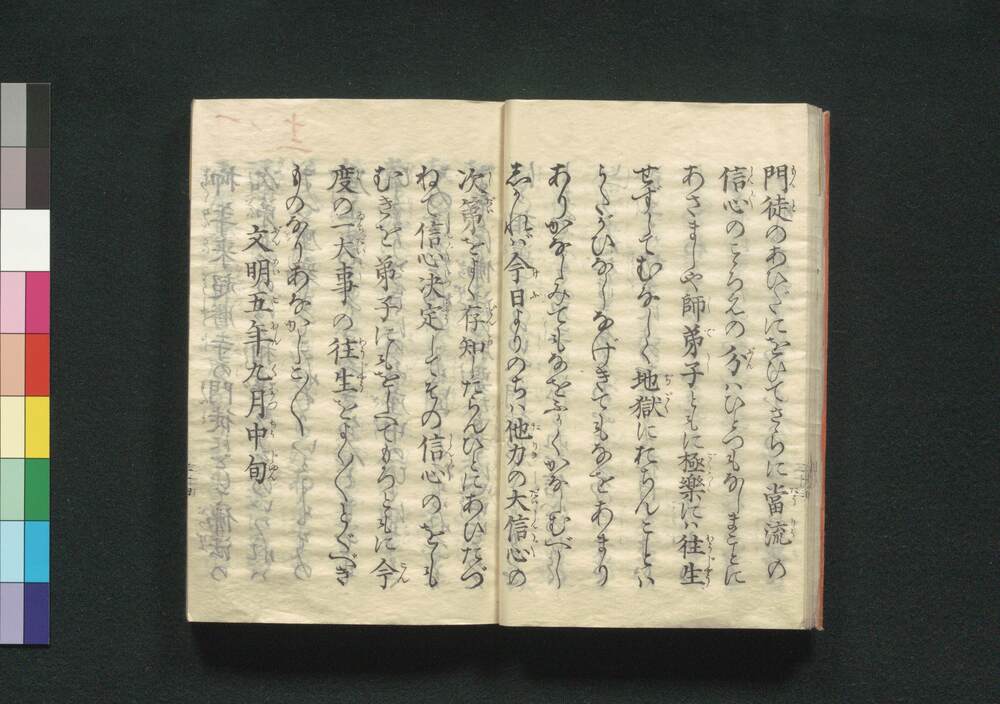 門徒のあひだにをひてさらに當流の
信心のこゝろえの分ハひとつもなしまことに
あさましや師弟子ともに極樂にハ往生
せずしてむなしく地獄におちんことハ
うたがひなしなげきてもなをあまり
ありかなしみてもなをふかくかなしむべし
しかれハ今日よりのちハ他力の大信心の
次第をよく存知したらんひとにあひたづ
ねて信心決定してその信心のをも
むきを弟子にもをしへてもろともに今
度の一大事の往生をよく〱とぐべき
ものなりあなかしこ〱
文明五年九月中旬